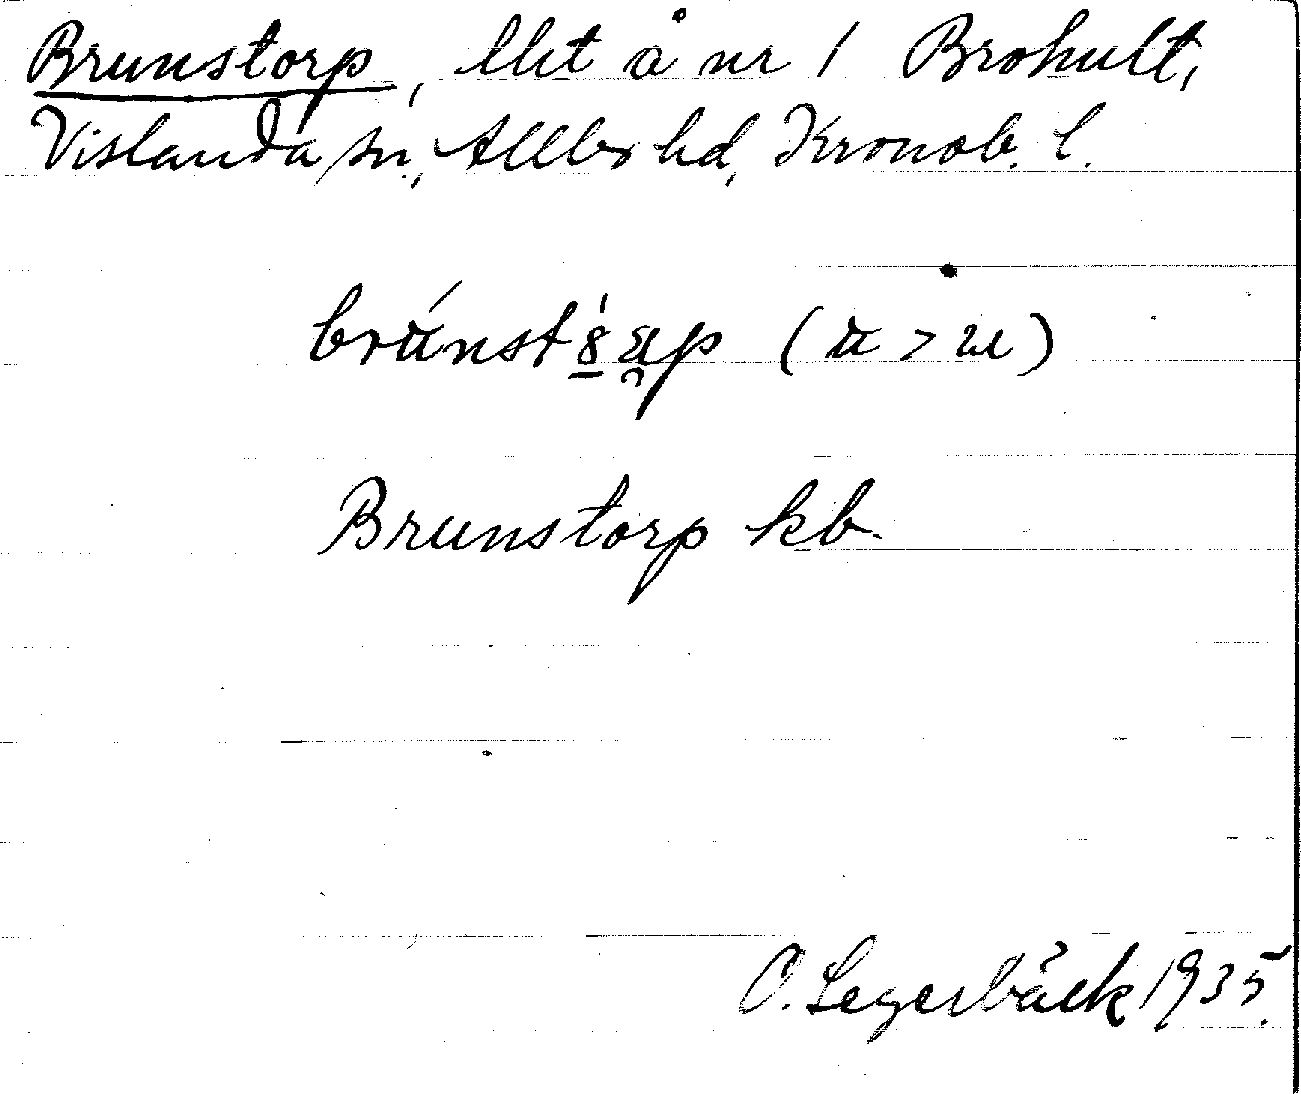 Brunstorp, lht å nr 1 Brohult,
Vislanda sn, Allbo hd, Kronob. l.
Brunstorp kb.
O. Legerbäck 1935.